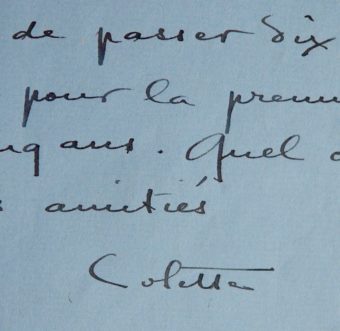 de passer dix
pour la prem
nq ans. Quel
amitiés
Colette